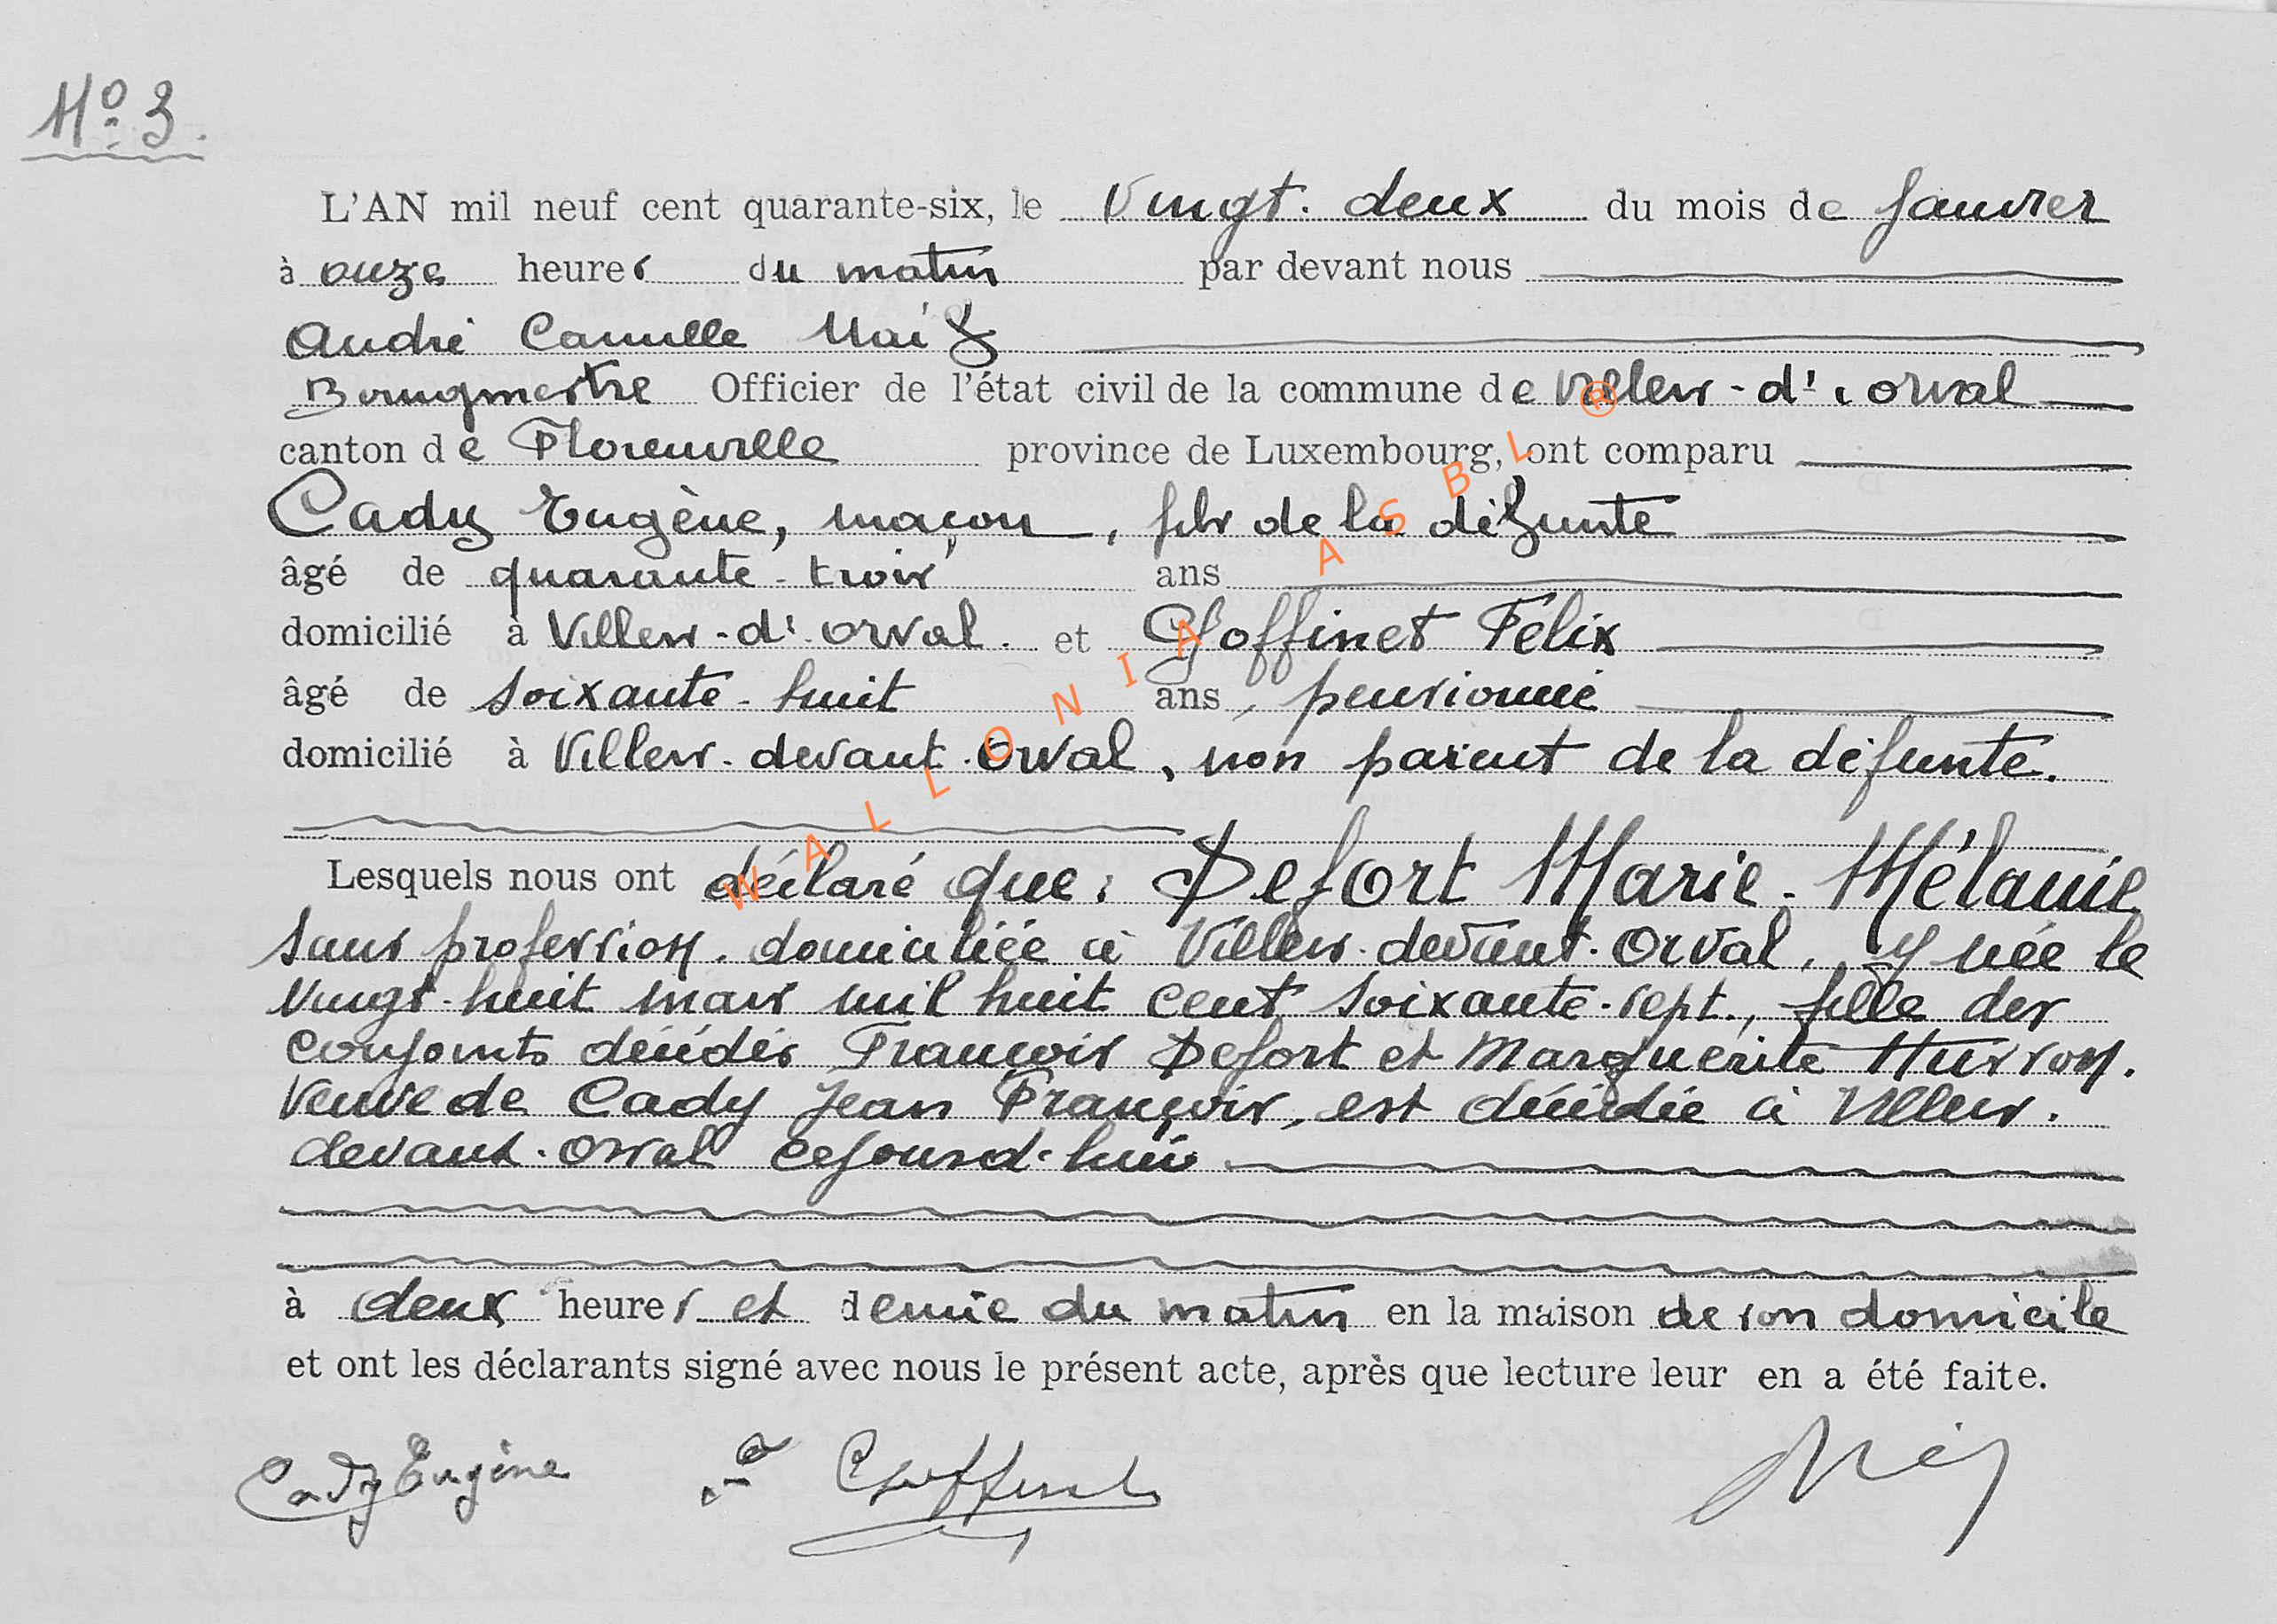 No 3.
L'AN mil neuf cent quarante-six, le Vingt-deux du mois de Janvier
à onze heures du matin par devant nous
André Camille
Bourgmestre Officier de l'état civil de la commune de Villers-d'-orval
canton de Florenville province de Luxembourg, ont comparu
Cady Eugène, maçon, fils de la défunte
âgé de quarante-trois ans
domicilié à Villers-d'-orval. et Goffinet Félix
âgé de soixante-huit ans, pensionné
domicilié à Villers-devant-Orval, non parent de la défunte.
Lesquels nous ont déclaré que: Defort Marie-Mélanie
sans profession. domiciliée à Villers-devant-Orval, y née le
vingt-huit mars mil huit cent soixante-sept., fille des
conjoints décédés François Defort et Marguerite Husson.
Veuve de Cady Jean François, est décédée à Villers-
devant-Orval cejourd'hui
à deux heures et demie du matin en la maison de son domicile
et ont les déclarants signé avec nous le présent acte, après que lecture leur en a été faite.
Cady Eugène Goffinet
WALLONIA ASBL ®